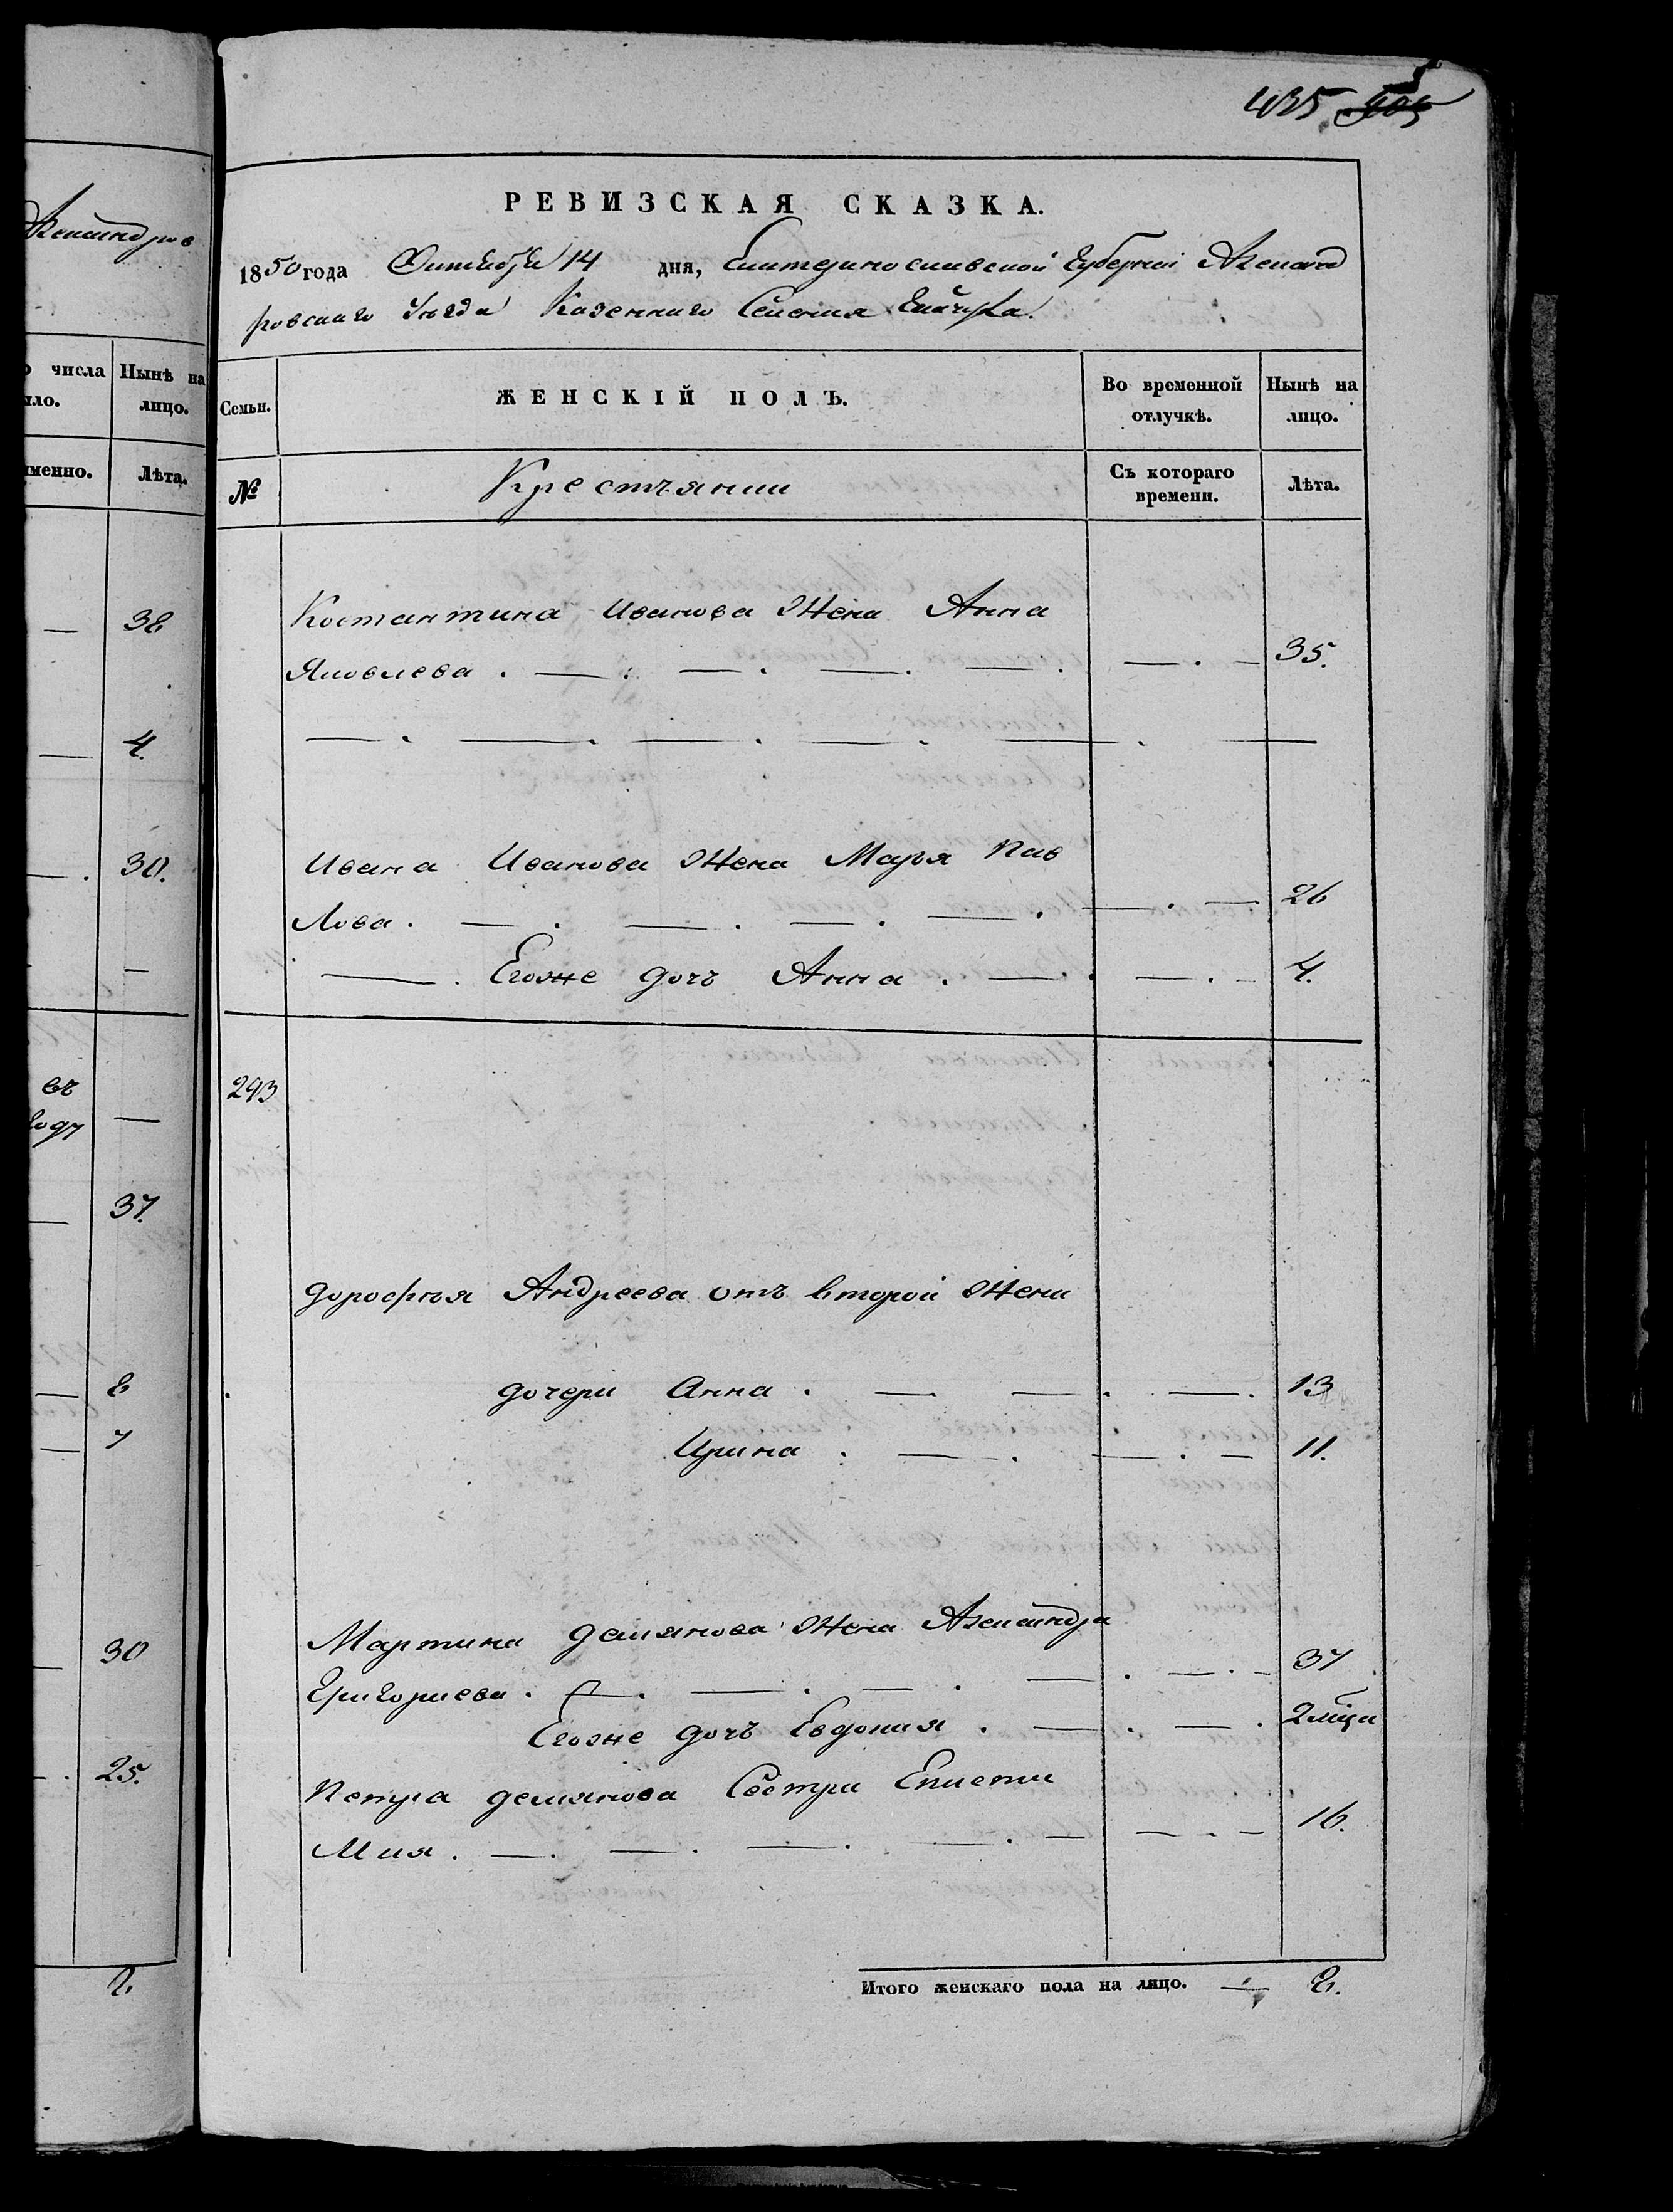 Александров
числа
Нынѣ на
лицо.
именно.
Лѣта.
38
4.
30.
въ
году
37.
8
7
30
25.
8.
435
РЕВИЗСКАЯ СКАЗКА.
1850 года Октября 14 дня, Екатеринославской Губернии Александ
ровскаго Уѣзда Казеннаго Селения
Семьи. ЖЕНСКІЙ ПОЛЪ. Во временной отлучкѣ. Нынѣ на лицо.
№ Крестьянин Съ котораго времени. Лѣта.
Костантина Иванова Жена Анна
Яковлева . — . — . — . — . — . — 35.
Ивана Иванова Жена Марья Пав
лова . — . — . — . — . — . — 26
— . Егоже дочь Анна . — . — . — 4.
243
Дорофѣя Андреева отъ второй Жены
дочери Анна . — — . — . 13
Ирина . — . — . — 11.
Мартина Демянова Жена Александра
Григориева . — . — . — . — . — . — 37
Егоже дочь Евдокия . — . — . 2 мѣца
Петра Демянова Сестра Еписти
мия . — . — . — . — . — — . — 16.
Итого женскаго пола на лицо. — 8.